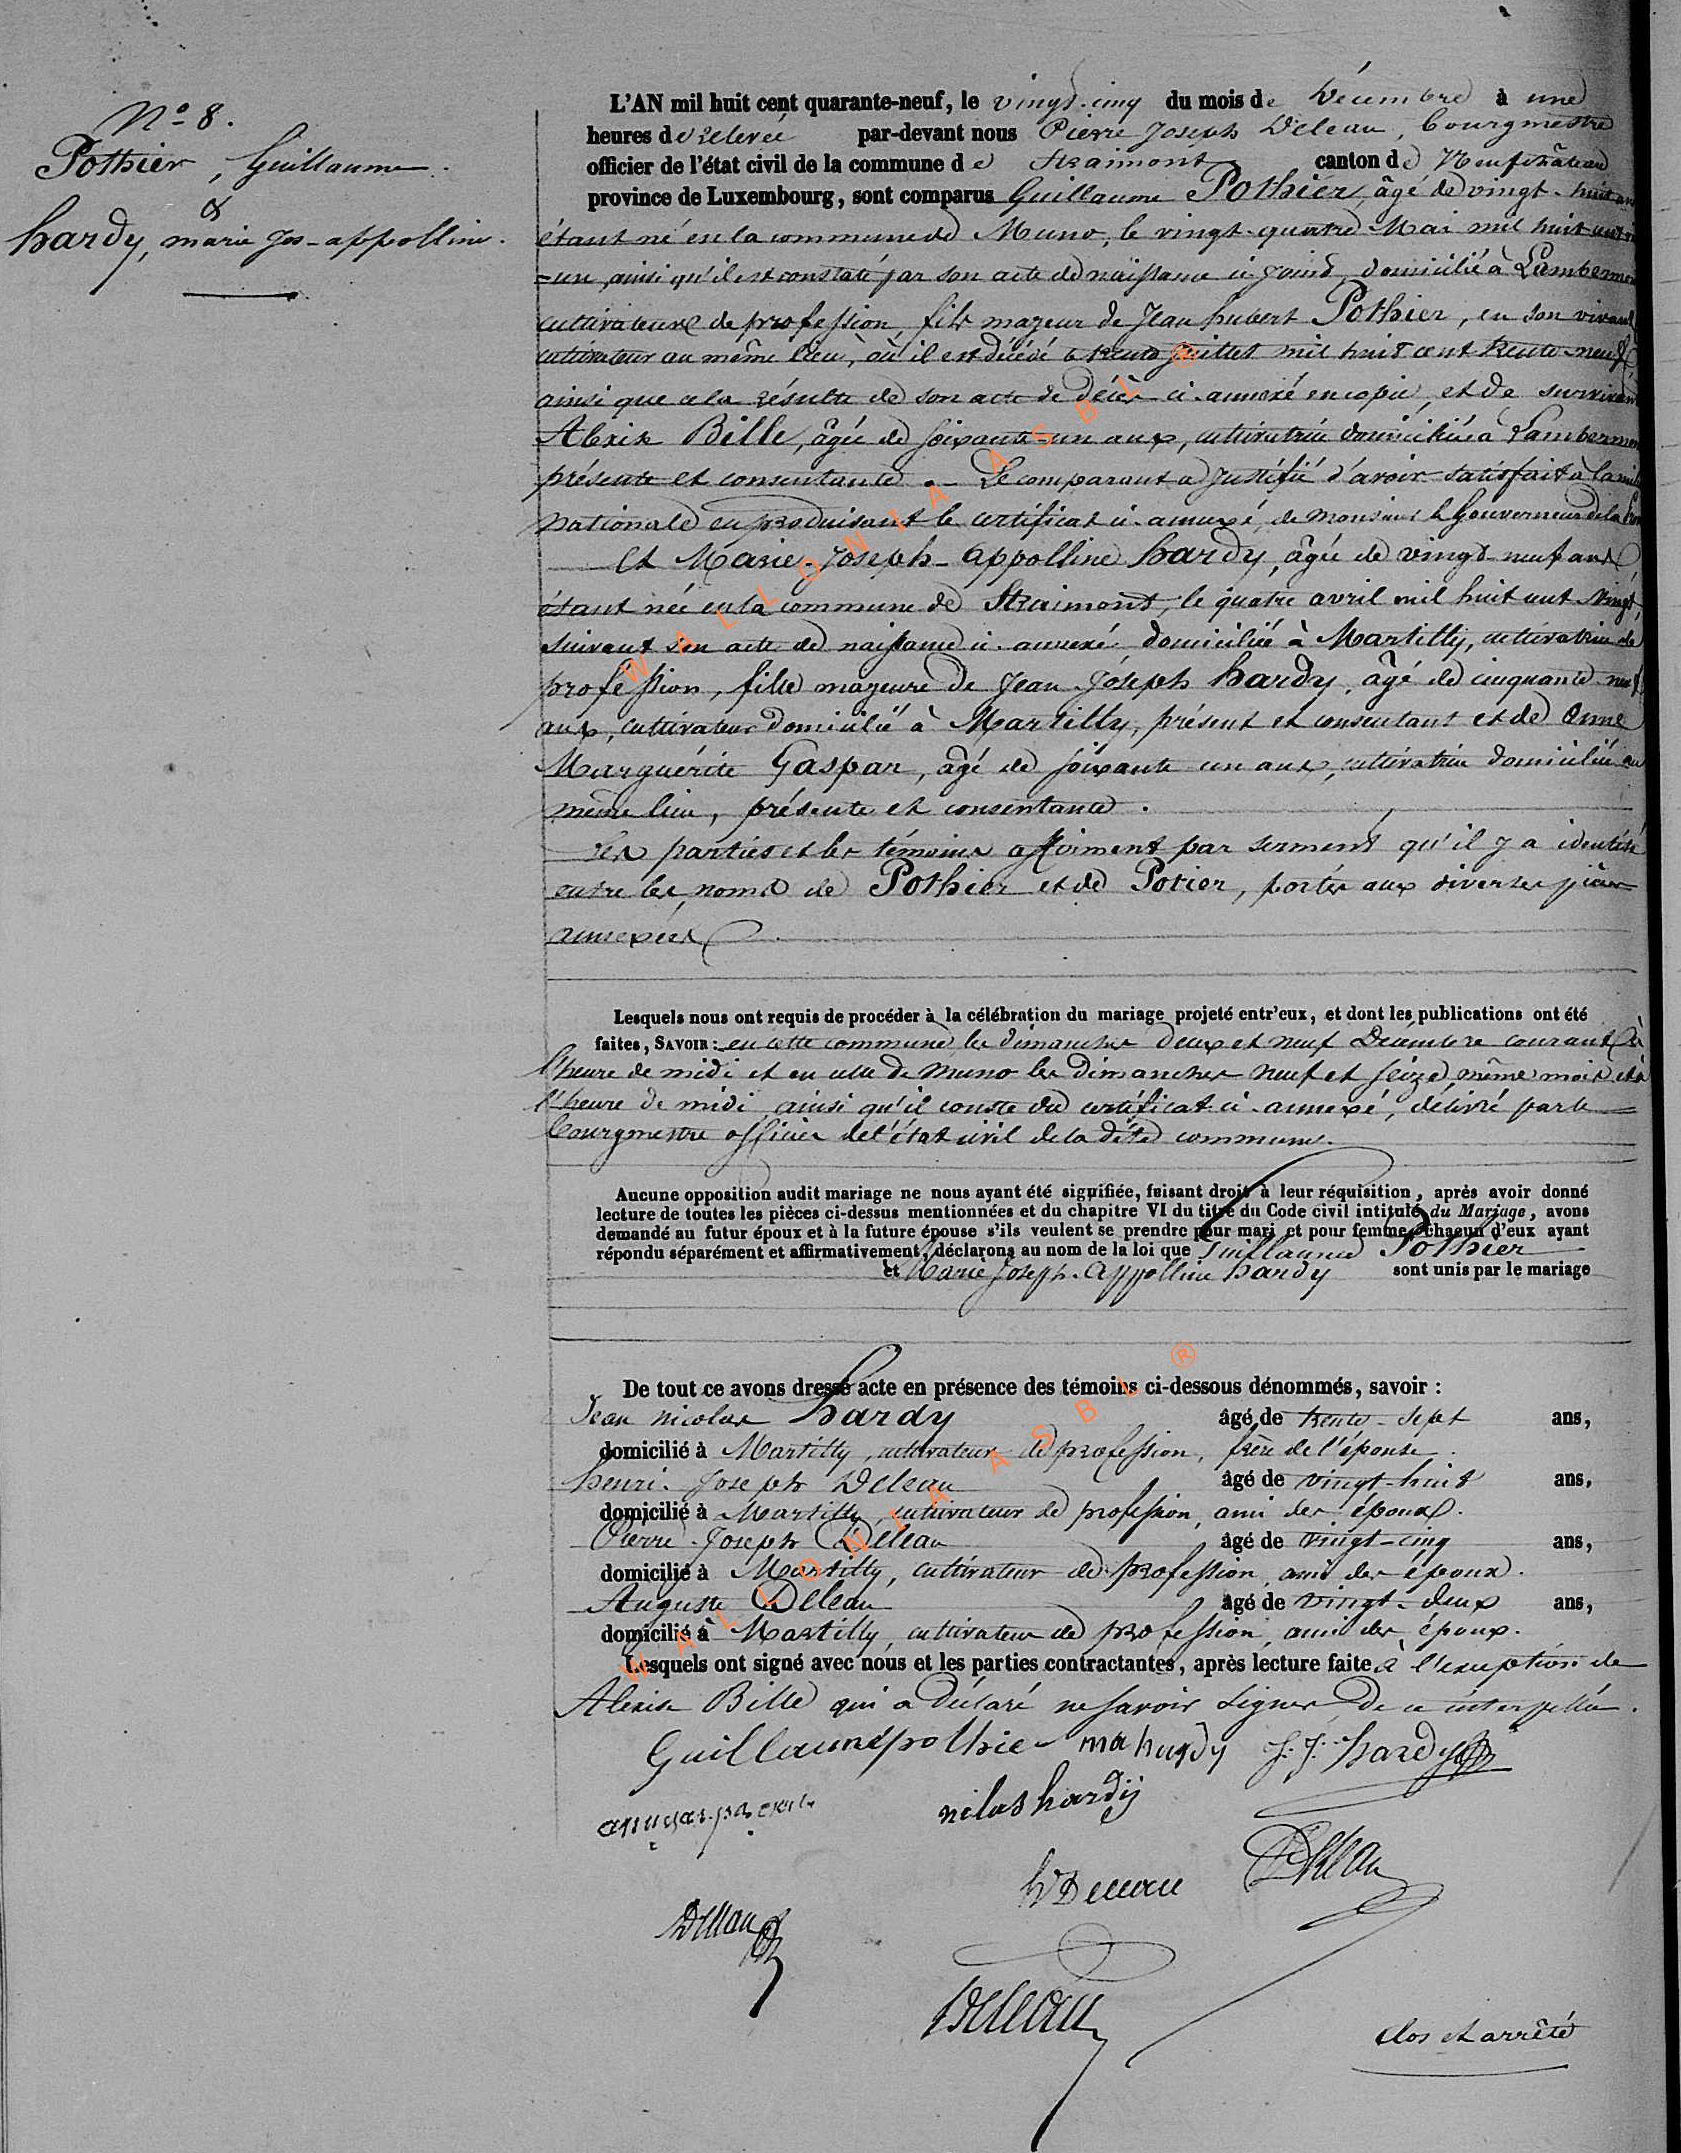 N° 8.
Pothier, Guillaume.
&
hardy, marie Jos-appolline.
L'AN mil huit cent quarante-neuf, le vingt-cinq du mois de Décembre à une
heures de relevée par-devant nous Pierre Joseph Deleau, bourgmestre
officier de l'état civil de la commune de Straimont canton de Neufchâteau
province de Luxembourg, sont comparus Guillaume Pothier, âgé de vingt-huit ans
étant né en la commune de Muno, le vingt-quatre Mai mil huit cent vingt
-un, ainsi qu'il est constaté par son acte de naissance ci-joint, domicilié à Lambermont
cultivateur de profession, fils majeur de Jean hubert Pothier, en son vivant
cultivateur au même lieu, où il est décédé le trente juillet mil huit cent trente-neuf
ainsi que cela résulte de son acte de décès ci-annexé en copie, et de survivante
Alexise Bille, âgée de soixante-un ans, cultivatrice domiciliée à Lambermont
présente et consentante. - Le comparant a justifié d'avoir satisfait à la milice
nationale en produisant le certificat ci-annexé, de monsieur le Gouverneur de la
Et Marie-Joseph-Appolline hardy, âgée de vingt-neuf ans
étant née en la commune de Straimont, le quatre avril mil huit cent vingt,
suivant son acte de naissance ci-annexé domiciliée à Martilly, cultivatrice de
profession, fille majeure de Jean-Joseph hardy, âgé de cinquante-neuf
ans, cultivateur domicilié à Martilly, présent et consentant et de Anne
Marguérite Gaspar, âgé de soixante un ans, cultivatrice domiciliée au
même lieu, présente et consentante.
Les parties et les témoins affirment par serment qu'il y a identité
entre les noms de Pothier et de Potier, portés aux diverses pièces
annexées
Lesquels nous ont requis de procéder à la célébration du mariage projeté entr'eux, et dont les publications ont été
faites, SAVOIR: en cette commune les dimanches deux et neuf Décembre courant à
l'heure de midi et en celle de Muno les dimanches neuf et seize même mois et à
l'heure de midi, ainsi qu'il conste du certificat ci-annexé, délivré par le
bourgmestre officier de l'état civil de la dite commune.
Aucune opposition audit mariage ne nous ayant été signifiée, faisant droit à leur réquisition, après avoir donné
lecture de toutes les pièces ci-dessus mentionnées et du chapitre VI du titre du Code civil intitulé du Mariage, avons
demandé au futur époux et à la future épouse s'ils veulent se prendre pour mari et pour femme, chacun d'eux ayant
répondu séparément et affirmativement, déclarons au nom de la loi que Guillaume Pothier
et Marie Joseph-Appolline hardy sont unis par le mariage
De tout ce avons dressé acte en présence des témoins ci-dessous dénommés, savoir :
Jean nicolas hardy âgé de trente-sept ans,
domicilié à Martilly, cultivateur de profession, frère de l'épouse.
henri-Joseph Deleau âgé de vingt-huit ans,
domicilié à Martilly, cultivateur de profession, ami des époux.
Pierre-Joseph Deleau âgé de vingt-cinq ans,
domicilié à Martilly, cultivateur de profession, ami des époux.
Auguste Deleau âgé de vingt-deux ans,
domicilié à Martilly, cultivateur de profession, ami des époux.
Lesquels ont signé avec nous et les parties contractantes, après lecture faite à l'exception de
Alexise Bille qui a déclaré ne savoir signer de ce interpellée.
Guillaume pothier ma hardy J. J. hardy
nilas hardy
hDeleau Deleau
Deleau
Deleau
clos et arrêté
WALLONIA ASBL ®
WALLONIA ASBL ®